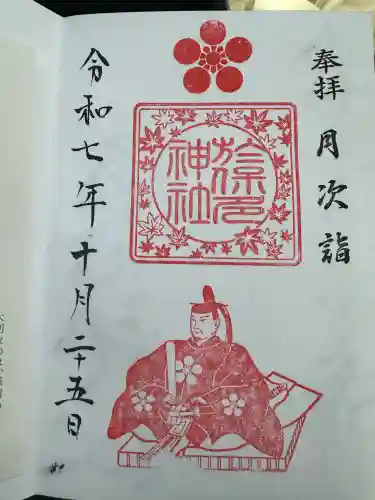 奉拝 月次詣
於保多
神社
令和七年十月二十五日